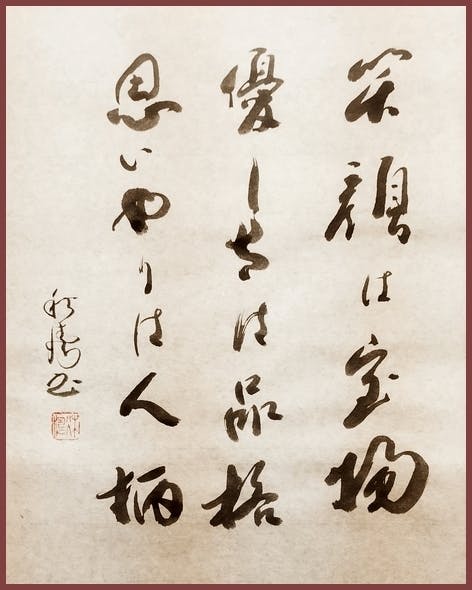 笑顔は宝物
優しさは品格
思いやりは人柄